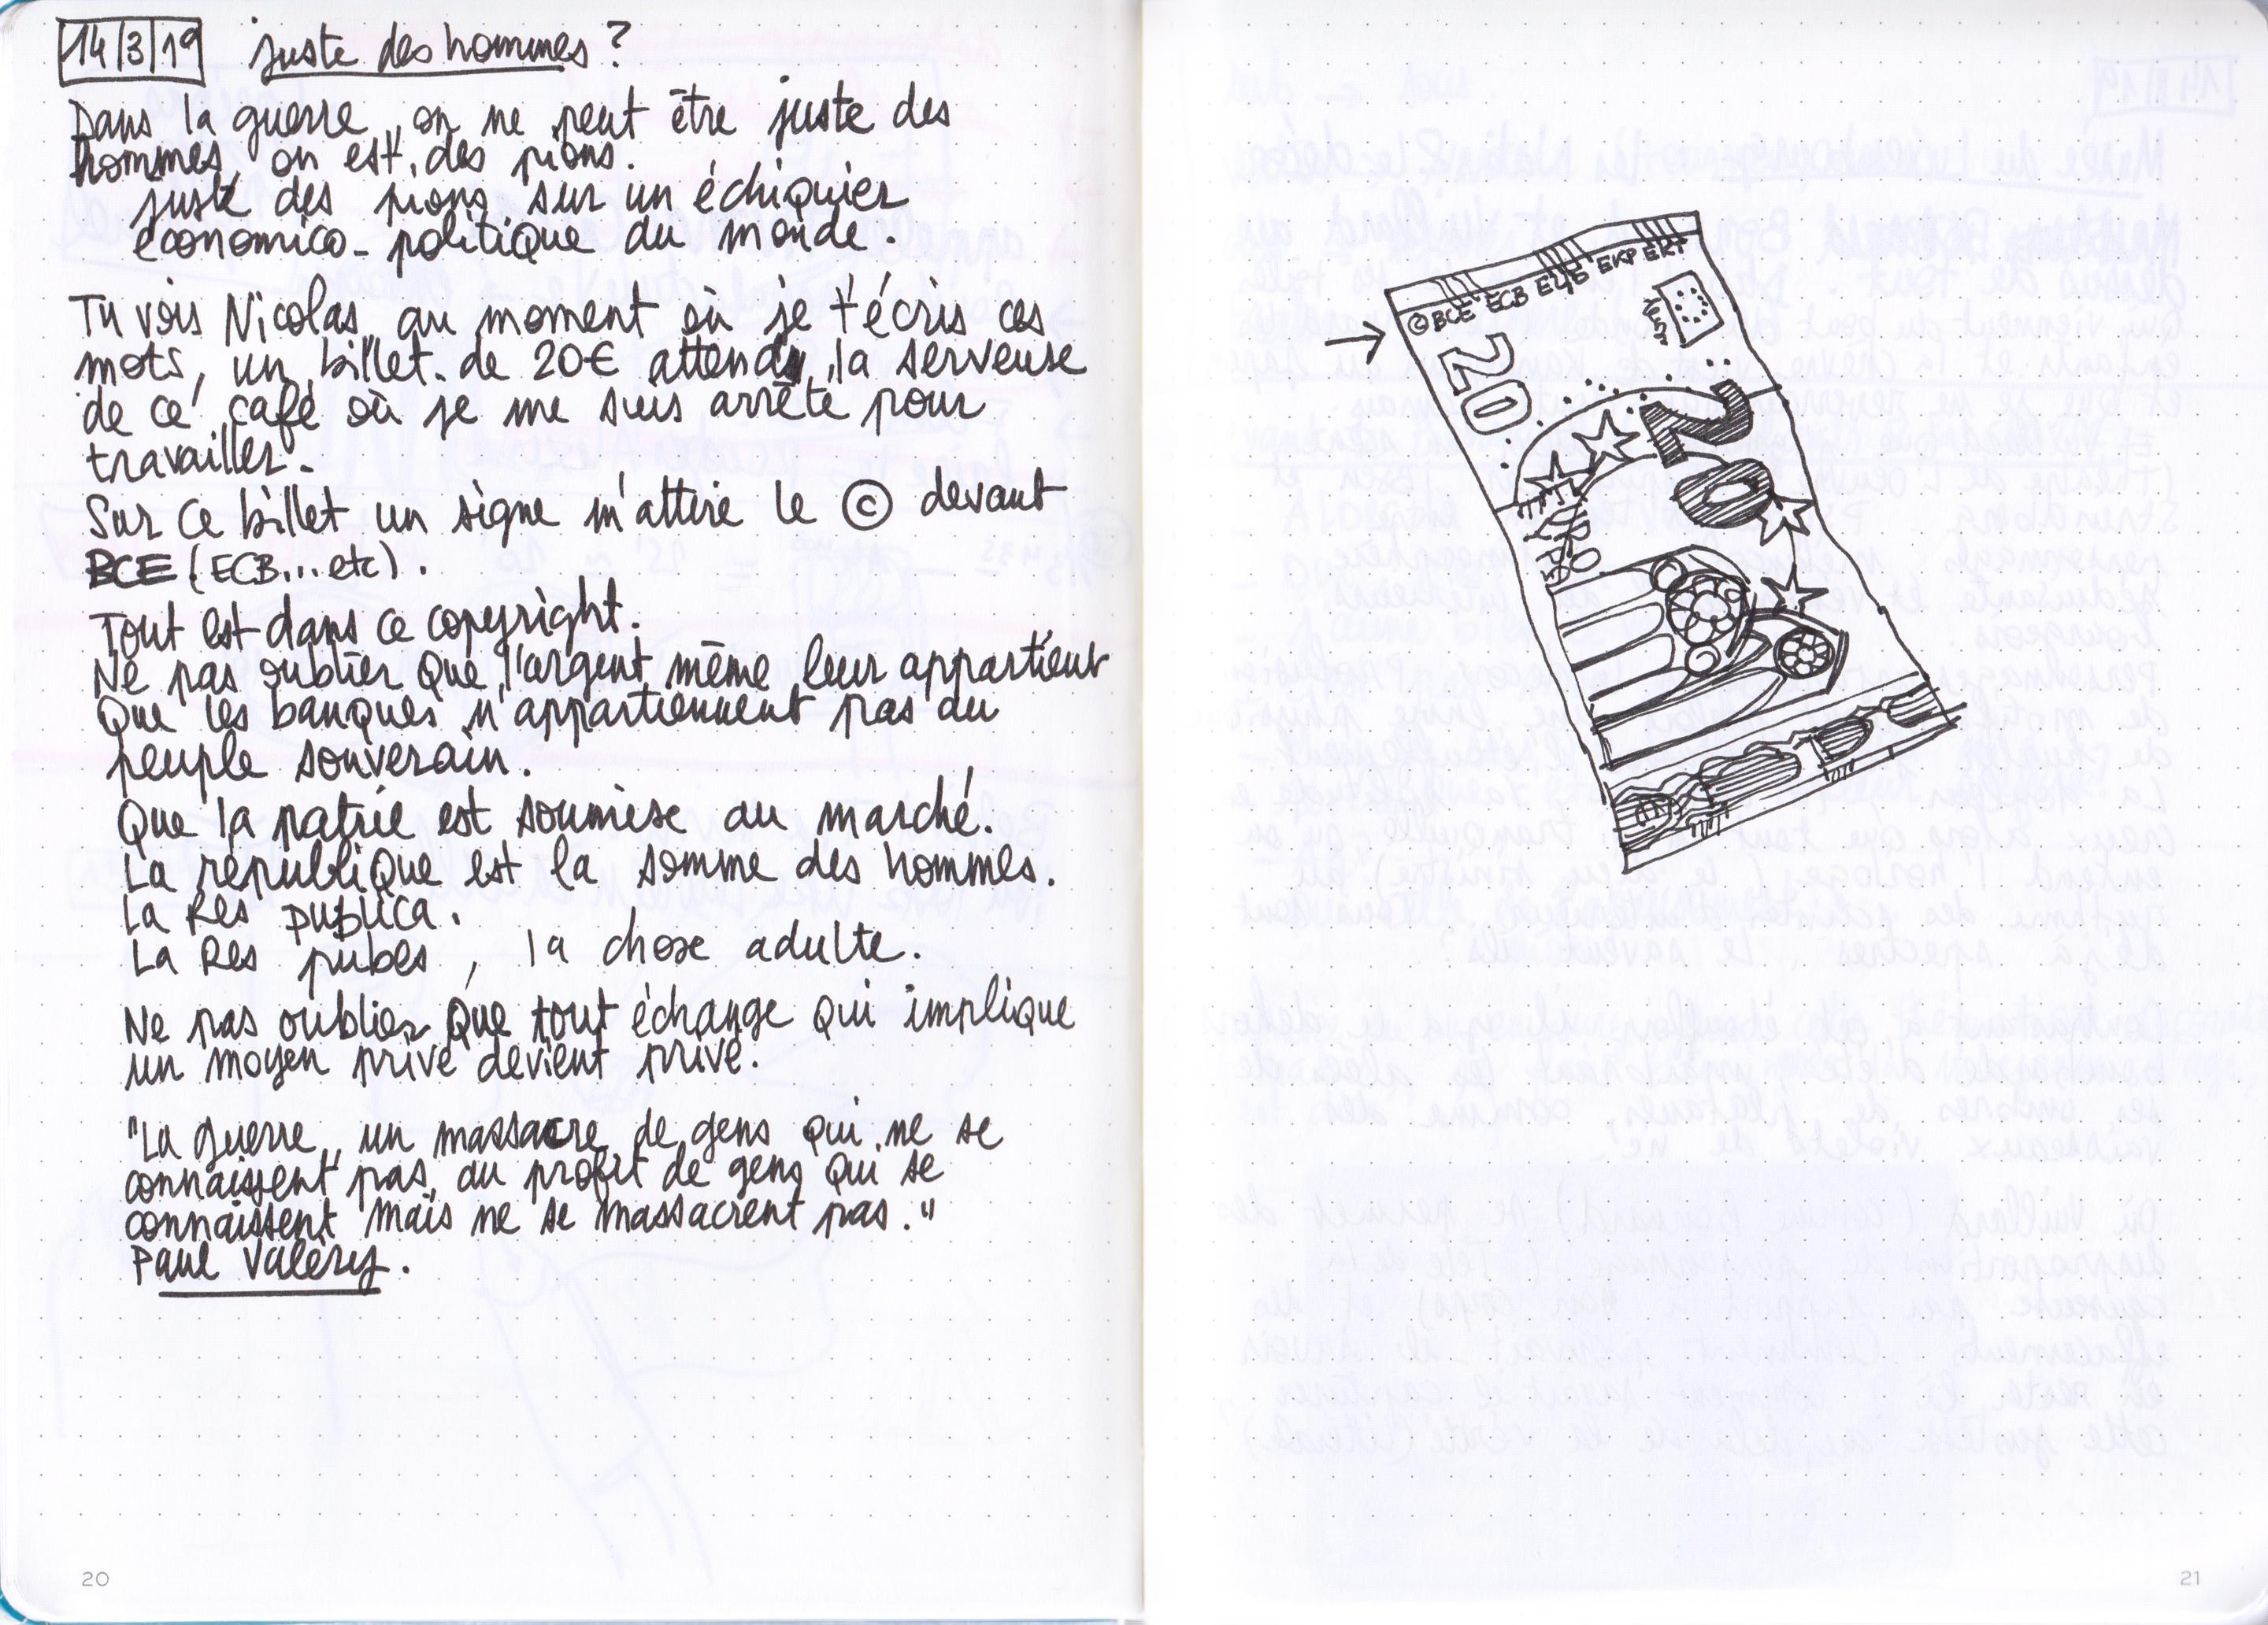 14/3/19 juste des hommes ?
Dans la guerre, on ne peut être juste des
hommes, on est des pions.
juste des pions sur un échiquier
économico-politique du monde.
Tu vois Nicolas, au moment où je t'écris ces
mots, un billet de 20€ attend la serveuse
de ce café où je me suis arrêté pour
travailler.
Sur ce billet un signe m'attire le © devant
BCE (ECB...etc).
Tout est dans ce copyright.
Ne pas oublier que l'argent même leur appartient
Que les banques n'appartiennent pas au
peuple souverain.
Que la patrie est soumise au marché.
La république est la somme des hommes.
La Res publica.
La Res pubes, la chose adulte.
Ne pas oublier que tout échange qui implique
un moyen privé devient privé.
"La guerre, un massacre de gens qui ne se
connaissent pas, au profit de gens qui se
connaissent mais ne se massacrent pas."
Paul Valéry.
20
© BCE ECB EZB EKP EKT
20
20
EURO
21